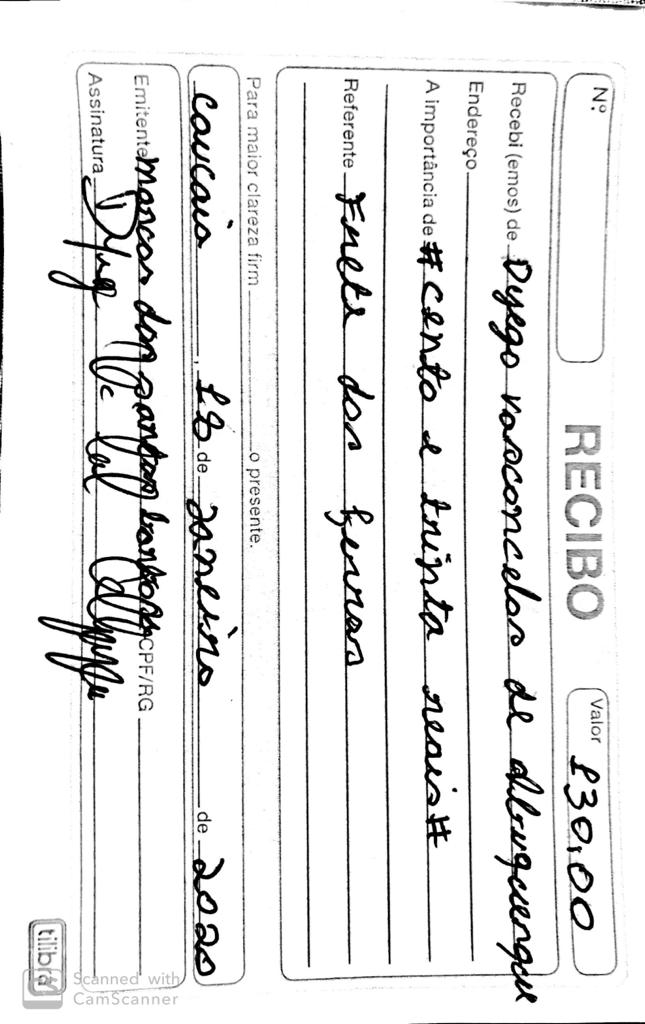 Nº
RECIBO
Valor 130,00
Recebi (emos) de Dyego vasconcelos de Albuquerque
Endereço
A importância de #cento e trinta reais#
Referente Frete dos ferros
Para maior clareza firm o presente.
caucaia, 18 de Janeiro de 2020
Emitente Marcos dos santos CPF/RG
Assinatura
tilibra
Scanned with
CamScanner